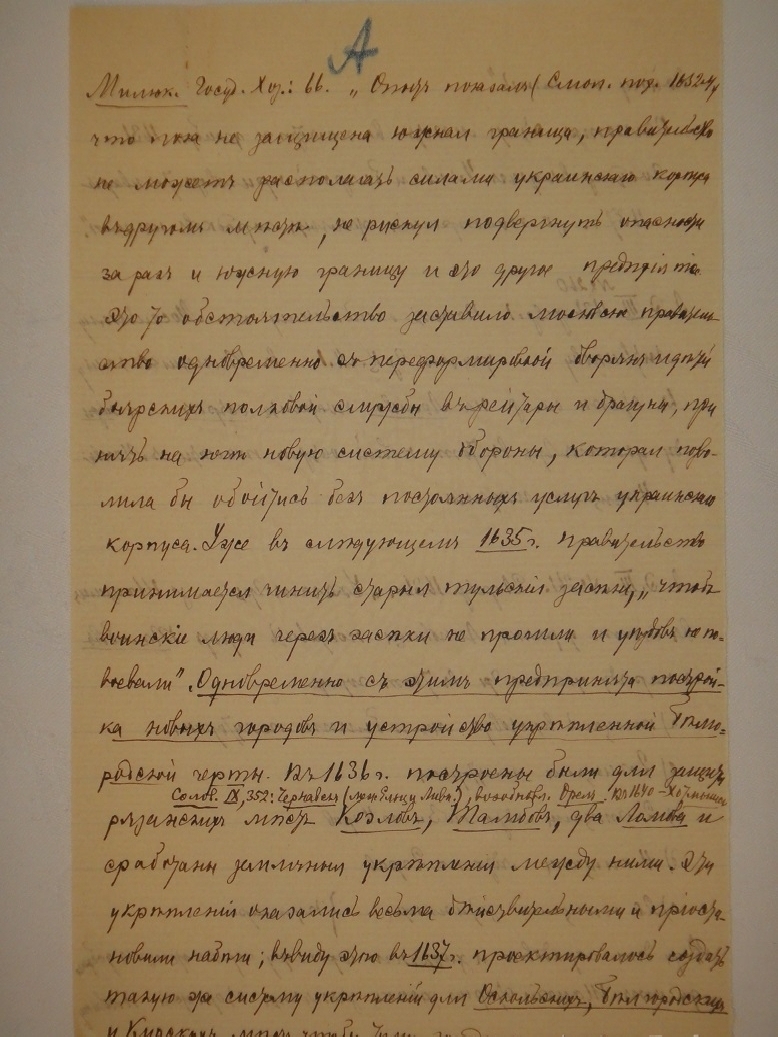 А
Милюк. Госуд. Хоз.: 66. „Опытъ показалъ (Смол. пох. 1632-4),
что пока не защищена южная граница, правительство
не можетъ располагать силами украинскаго корпуса
въ другомъ мѣстѣ, не рискуя подвергнуть опасности
за разъ и южную границу и это другое предпріятіе.
Это то обстоятельство заставило московское правитель-
ство одновременно съ переформировкой дворянъ и дѣтей
боярскихъ полковой службы въ рейтары и драгуны, при
нять на югѣ новую систему обороны, которая позво-
лила бы обойтись безъ постоянныхъ услугъ украинскаго
корпуса. Уже въ слѣдующемъ 1635 г. правительство
принимается чинить старыя тульскія засѣки, „чтобъ
воинскіе люди черезъ засѣки не прошли и уѣздовъ не по-
воевали". Одновременно съ этимъ предпринята построй-
ка новыхъ городовъ и устройство укрѣпленной Бѣлго-
родской черты. Въ 1636 г. построены были для защиты
Солов. IX, 352: Чернавскъ (меж. Ельцу Ливн.), возобновл. Орелъ. Въ 1640 – Хотмышск
рязанскихъ мѣстъ Козловъ, Тамбовъ, два Ломова и
сработаны земляныя укрѣпленія между ними. Эти
укрѣпленія оказались весьма дѣйствительными и пріоста-
новили набѣги; въ виду этого въ 1637 г. проектировалось создать
такую же систему укрѣпленій для Оскольскихъ, Бѣлгородскихъ
и Курскихъ мѣстъ, чтобы